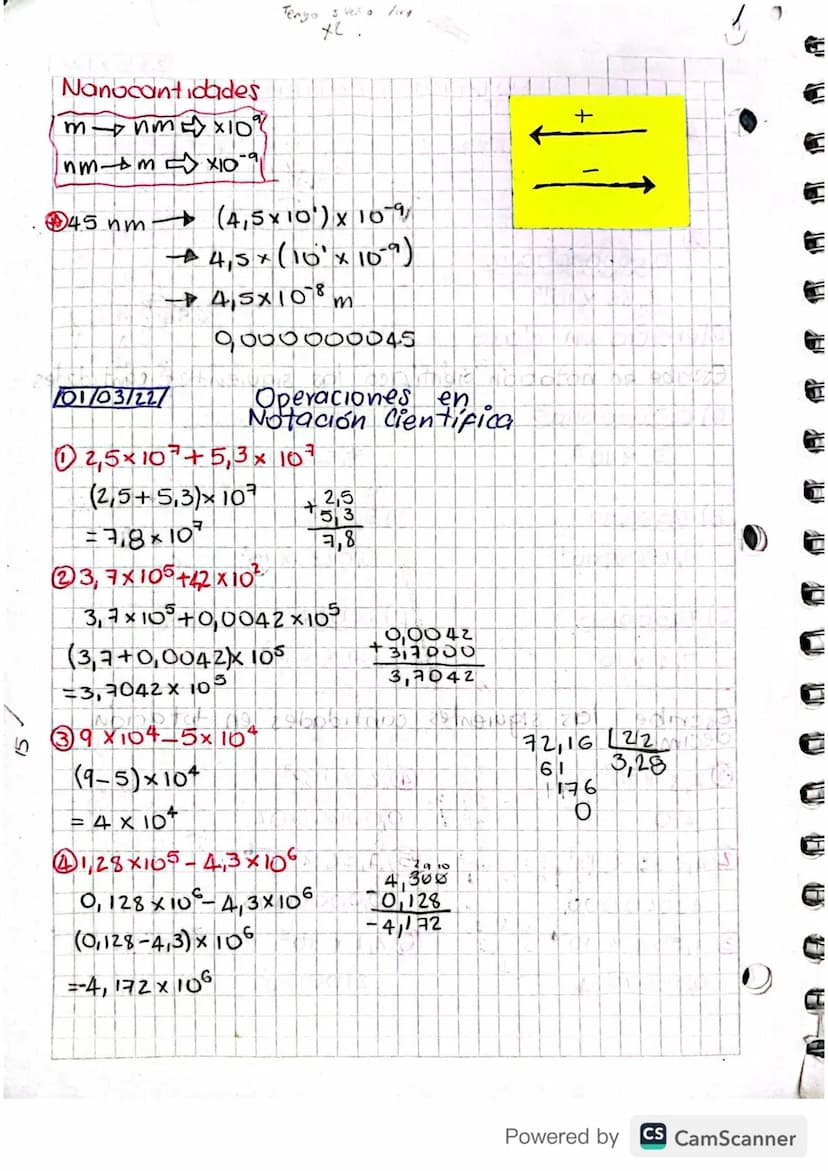 Tengo sueño
xd.
1
Nanocantidades
m → nm ⇨ x10⁹
nm → m ⇨ x10⁻⁹
+
−
45 nm → (4,5 x 10¹) x 10⁻⁹
→ 4,5 x (10¹ x 10⁻⁹)
→ 4,5x10⁻⁸ m
0,000000045
01/03/22
Operaciones en
Notación Científica
① 2,5x10⁷ + 5,3 x 10⁷
(2,5+5,3)x 10⁷
= 7,8 x 10⁷
2,5
+ 5,3
7,8
② 3,7x10⁵+42 x10²
3,7 x10⁵+0,0042 x10⁵
(3,7+0,0042)x 10⁵
=3,7042 x 10⁵
0,0042
+ 3,7000
3,7042
15/
③ 9 x10⁴ − 5x 10⁴
(9−5)x10⁴
= 4 x 10⁴
72,16 22
61 3,28
176
0
④ 1,28 x10⁵ − 4,3x10⁶
0,128 x10⁶ − 4,3x10⁶
(0,128−4,3)x 10⁶
=-4,172 x 10⁶
2 9 10
4,300
- 0,128
-4,172
Powered by CS CamScanner